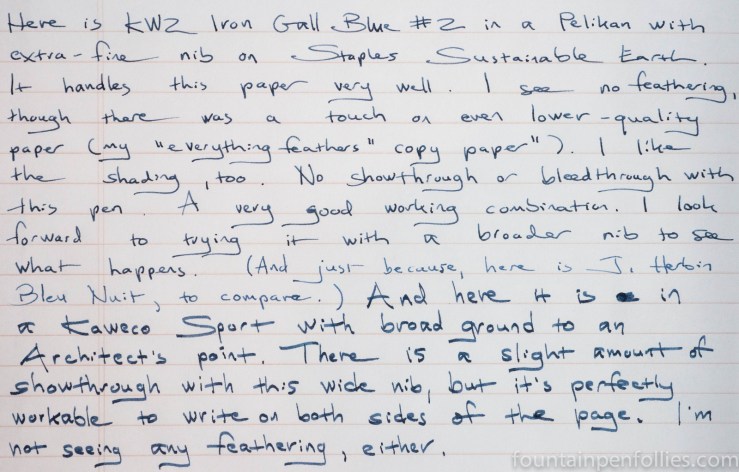 Here is KWZ Iron Gall Blue #2 in a Pelikan with
extra-fine nib on Staples Sustainable Earth.
It handles this paper very well. I see no feathering,
though there was a touch on even lower-quality
paper (my "everything feathers" copy paper"). I like
the shading, too. No showthrough or bleedthrough with
this pen. A very good working combination. I look
forward to trying it with a broader nib to see
what happens. (And just because, here is J. Herbin
Bleu Nuit, to compare.) And here it is in
a Kaweco Sport with broad ground to an
Architect's point. There is a slight amount of
showthrough with this wide nib, but it's perfectly
workable to write on both sides of the page. I'm
not seeing any feathering, either.
fountainpenfollies.com